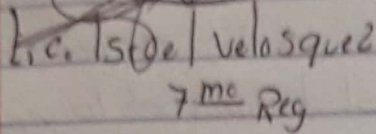 Lic. Isdel Velasquez
7 mo Reg